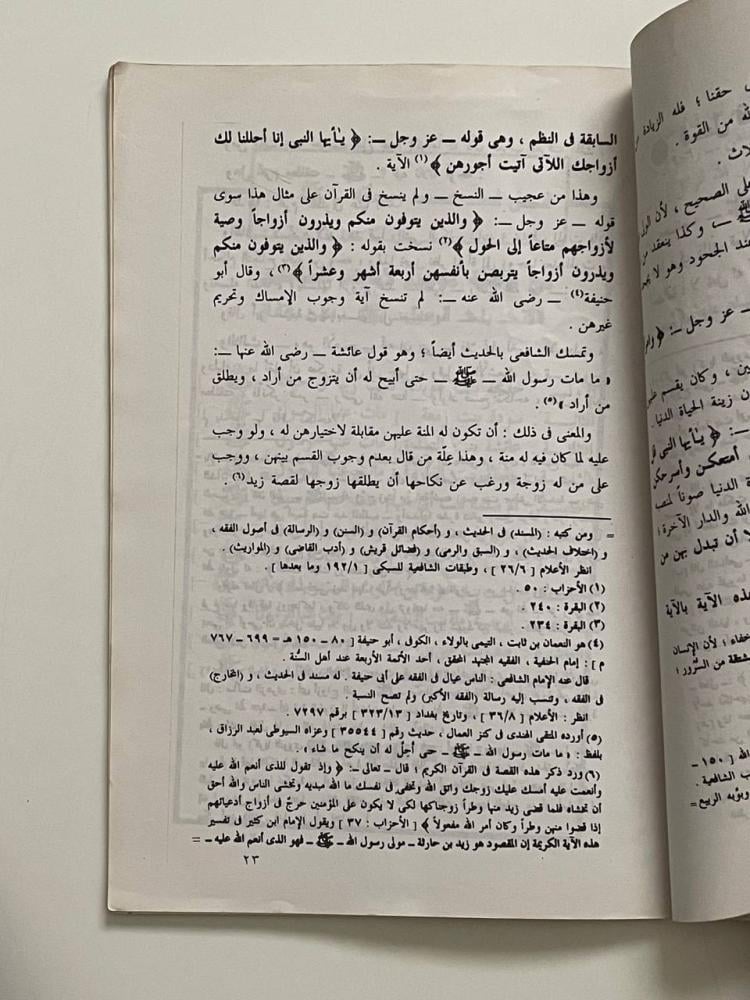 السابقة فى النظم ، وهى قوله ــ عز وجل ــ: ﴿ يٰأيها النبى إنا أحللنا لك
أزواجك اللاّتى آتيت أجورهن ﴾(١) الآية .
وهذا من عجيب ــ النسخ ــ ولم ينسخ فى القرآن على مثال هذا سوى
قوله ــ عز وجل ــ: ﴿ والذين يتوفون منكم ويذرون أزواجاً وصية
لأزواجهم متاعاً إلى الحول ﴾(٢) نسخت بقوله : ﴿ والذين يتوفون منكم
ويذرون أزواجاً يتربصن بأنفسهن أربعة أشهر وعشراً ﴾(٣) ، وقال أبو
حنيفة(٤) ــ رضى الله عنه ــ: لم تنسخ آية وجوب الإمساك وتحريم
غيرهن .
وتمسك الشافعى بالحديث أيضاً ؛ وهو قول عائشة ــ رضى الله عنها ــ:
« ما مات رسول الله ــ ﷺ ــ حتى أبيح له أن يتزوج من أراد ، ويطلق
من أراد »(٥) .
والمعنى فى ذلك : أن تكون له المنة عليهن مقابلة لاختيارهن له ، ولو وجب
عليه لما كان فيه له منة ، وهذا عِلّة من قال بعدم وجوب القسم بينهن ، ووجب
على من له زوجة ورغب عن نكاحها أن يطلقها زوجها لقصة زيد(٦) .
= ومن كتبه : (المسند) فى الحديث ، و (أحكام القرآن) و (السنن) و (الرسالة) فى أصول الفقه ،
و (اختلاف الحديث) ، و (السبق والرمى) و (فضائل قريش) و (أدب القاضى) و (المواريث) .
انظر الأعلام [ ٢٦/٦ ] ، وطبقات الشافعية للسبكى [ ١٩٢/١ وما بعدها ] .
(١) الأحزاب : ٥٠ .
(٢) البقرة : ٢٤٠ .
(٣) البقرة : ٢٣٤ .
(٤) هو النعمان بن ثابت ، التيمى بالولاء ، الكوفى ، أبو حنيفة [ ٨٠ ــ ١٥٠ هـ = ٦٩٩ ــ ٧٦٧
م ] : إمام الحنفية ، الفقيه المجتهد المحقق ، أحد الأئمة الأربعة عند أهل السُّنة .
قال عنه الإمام الشافعى : الناس عيال فى الفقه على أبى حنيفة . له مسند فى الحديث ، و (المخارج)
فى الفقه ، وتنسب إليه رسالة (الفقه الأكبر) ولم تصح النسبة .
انظر : الأعلام [ ٣٦/٨ ] ، وتاريخ بغداد [ ٣٢٣/١٣ ] برقم ٧٢٩٧ .
(٥) أورده المتقى الهندى فى كنز العمال ، حديث رقم [ ٣٥٥٤٤ ] وعزاه السيوطى لعبد الرزاق ،
بلفظ : « ما مات رسول الله ــ ﷺ ــ حتى أحِلّ له أن ينكح ما شاء » .
(٦) ورد ذكر هذه القصة فى القرآن الكريم ؛ قال ــ تعالى ــ: ﴿ وإذ تقول للذى أنعم الله عليه
وأنعمت عليه أمسك عليك زوجك واتق الله وتخفى فى نفسك ما الله مبديه وتخشى الناس والله أحق
أن تخشاه فلما قضى زيد منها وطراً زوجناكها لكى لا يكون على المؤمنين حرجٌ فى أزواج أدعيائهم
إذا قضوا منهن وطراً وكان أمر الله مفعولاً ﴾ [ الأحزاب : ٣٧ ] ويقول الإمام ابن كثير فى تفسير
هذه الآية الكريمة إن المقصود هو زيد بن حارثة ــ مولى رسول الله ــ ﷺ ــ فهو الذى أنعم الله عليه ــ =
٢٣
حقنا ؛ فله الزيادة
من القوة .
على الصحيح ، لأن
ــ، وكذا ينعقد
عند الجحود وهو لا
ــ عز وجل ــ:
، وكان يقسم
زينة الحياة الدنيا .
ــ: ﴿ يٰأيها النبى
أمتعكن وأسرحكن
الدنيا صوناً لمنصب
الله والدار الآخرة ؛
لا أن تبدل بهن من
هذه الآية بالآية
؛ لأن الإنسان
من السرور ؛
[ ١٥٠ ــ
الشافعية .
وبؤبه الربيع =